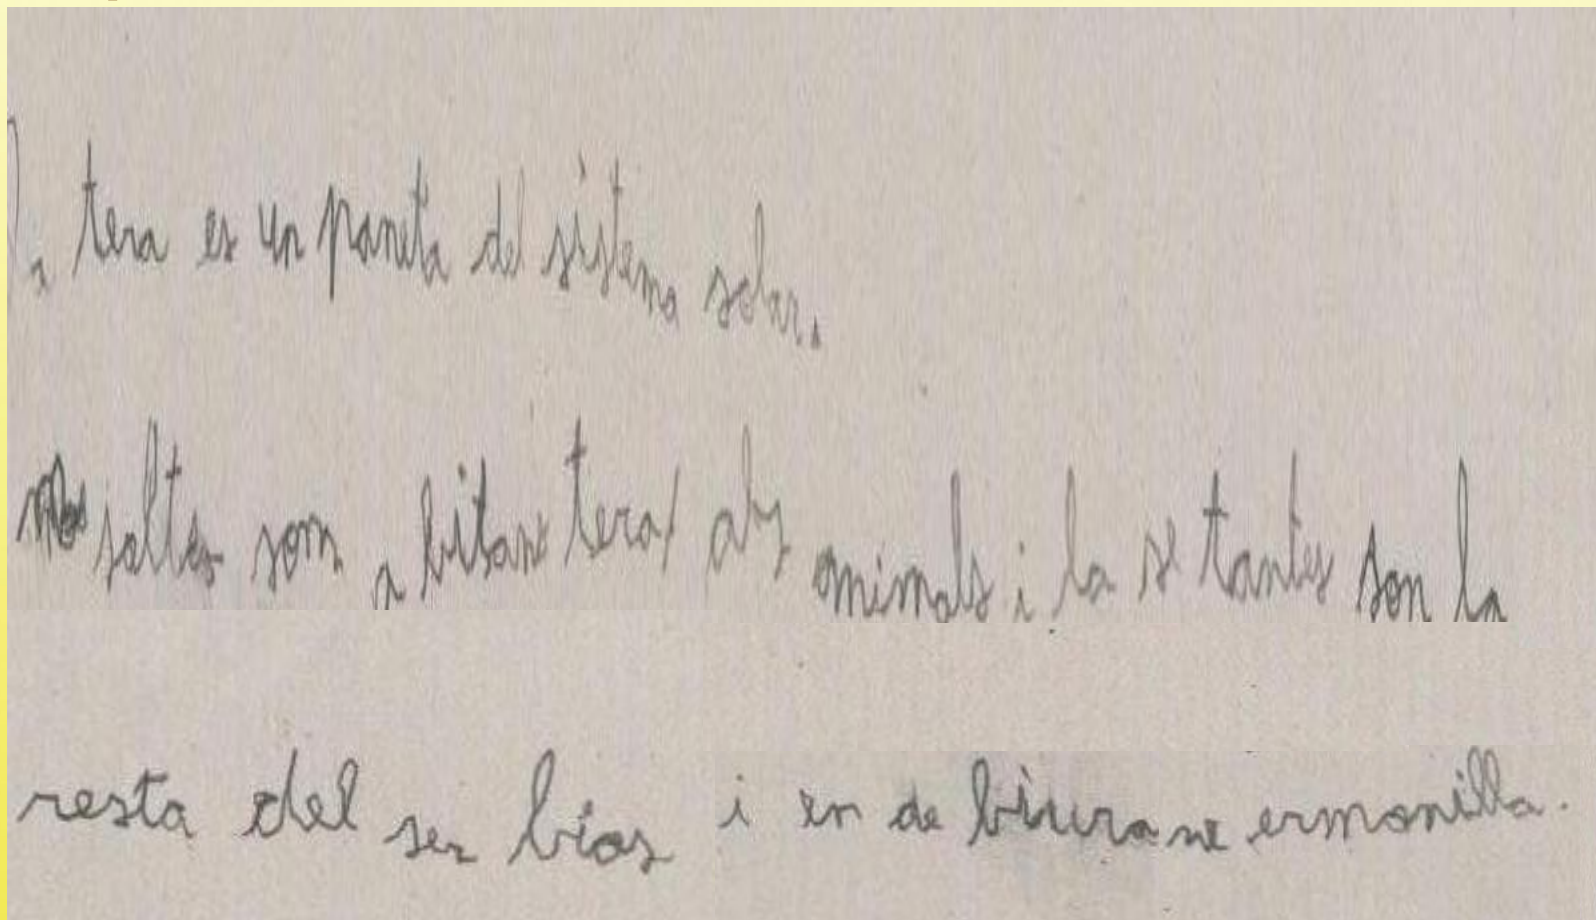 La tera es un paneta del sistema solar.
nos saltes som a bitans tera/ als animals i la se tantes son la
resta del ser bios i en de biura ne ermonilla.